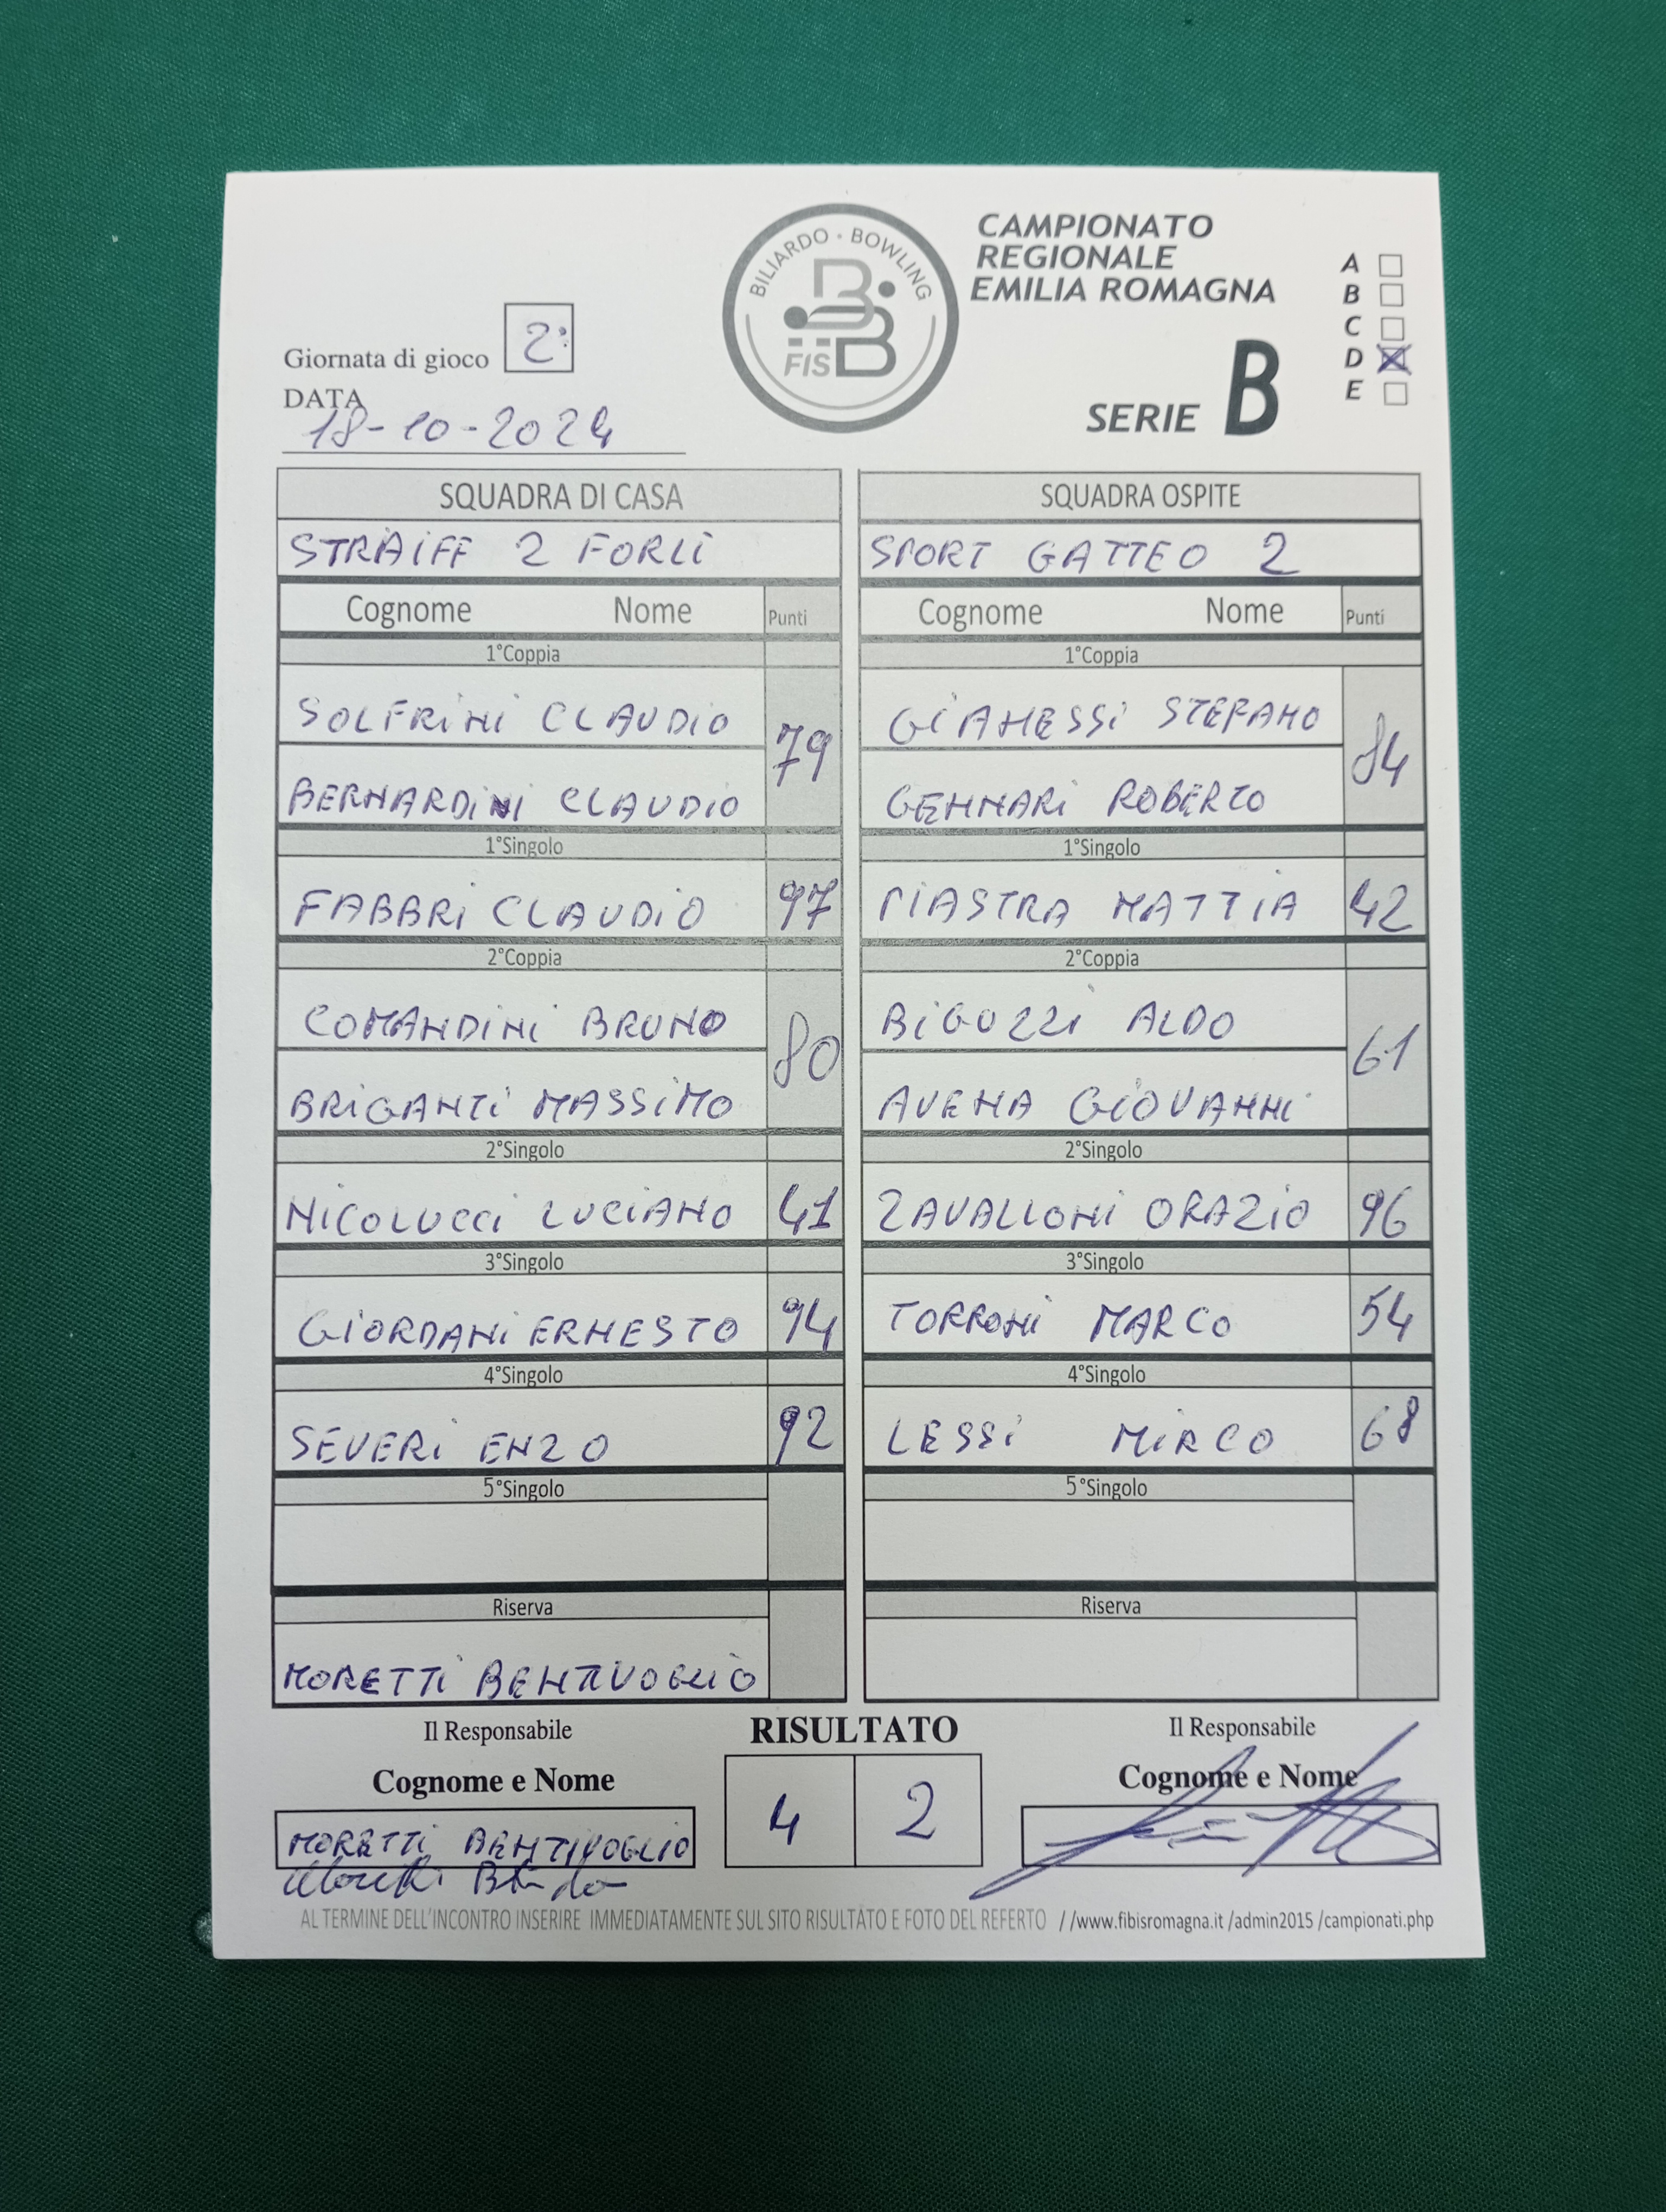 BILIARDO · BOWLING
FISB
CAMPIONATO
REGIONALE
EMILIA ROMAGNA
SERIE B
A
B
C
D
E
Giornata di gioco 2°
DATA
18-10-2024
SQUADRA DI CASA
STRAIFF 2 FORLI
Cognome Nome Punti
1°Coppia
SOLFRINI CLAUDIO
79
BERNARDINI CLAUDIO
1°Singolo
FABBRI CLAUDIO 97
2°Coppia
COMANDINI BRUNO
80
BRIGANTI MASSIMO
2°Singolo
NICOLUCCI LUCIANO 41
3°Singolo
GIORDANI ERNESTO 94
4°Singolo
SEVERI ENZO 92
5°Singolo
Riserva
MORETTI BENTIVOGLIO
SQUADRA OSPITE
SPORT GATTEO 2
Cognome Nome Punti
1°Coppia
GIANESSI STEFANO
84
GENNARI ROBERTO
1°Singolo
PIASTRA MATTIA 42
2°Coppia
BIGUZZI ALDO
61
AVENA GIOVANNI
2°Singolo
ZAVALLONI ORAZIO 96
3°Singolo
TORRONI MARCO 54
4°Singolo
LESSI MIRCO 68
5°Singolo
Riserva
Il Responsabile
Cognome e Nome
MORETTI BENTIVOGLIO
RISULTATO
4 2
Il Responsabile
Cognome e Nome
AL TERMINE DELL'INCONTRO INSERIRE IMMEDIATAMENTE SUL SITO RISULTATO E FOTO DEL REFERTO //www.fibisromagna.it /admin2015 /campionati.php